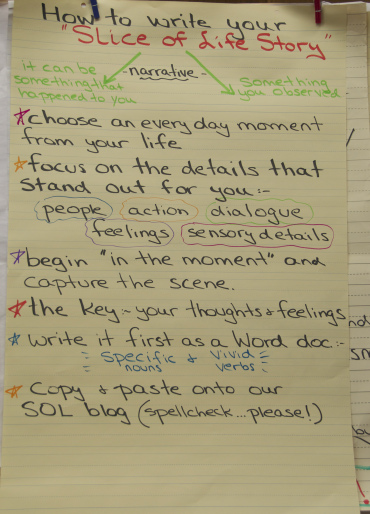 How to write your
"Slice of Life Story"
-narrative-
it can be
something that
happened to you
something
you observed
choose an everyday moment
from your life
focus on the details that
stand out for you:-
people action dialogue
feelings sensory details
begin "in the moment" and
capture the scene.
the key:- your thoughts & feelings
write it first as a Word doc:-
specific & vivid
nouns verbs
copy & paste onto our
SOL blog (spellcheck...please!)